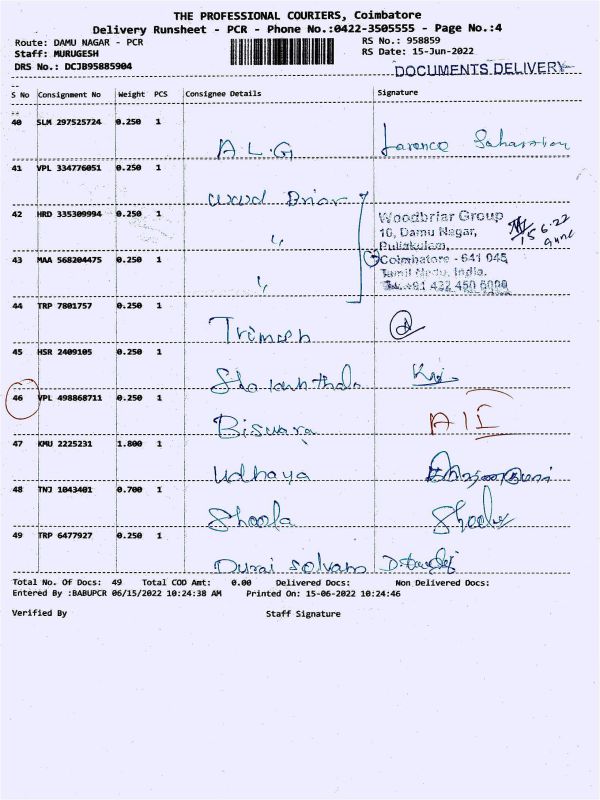 THE PROFESSIONAL COURIERS, Coimbatore
Delivery Runsheet - PCR - Phone No.:0422-3505555 - Page No.:4
Route: DAMU NAGAR - PCR
RS No.: 958859
Staff: MURUGESH
RS Date: 15-Jun-2022
DRS No.: DCJB95885904
DOCUMENTS DELIVERY
S No Consignment No Weight PCS Consignee Details Signature
40 SLM 297525724 0.250 1
A.L.G
41 VPL 334776051 0.250 1
Wood Briar
42 HRD 335309994 0.250 1
"
Woodbriar Group
10, Damu Nagar,
Puliakulam,
Coimbatore - 641 045
Tamil Nadu, India.
15.6.22
43 MAA 568204475 0.250 1
"
44 TRP 7801757 0.250 1
45 HSR 2409105 0.250 1
46 VPL 498868711 0.250 1
47 KMU 2225231 1.800 1
Udhaya
48 TNJ 1043401 0.700 1
Shoola
49 TRP 6477927 0.250 1
Durai Solvam
Total No. Of Docs: 49 Total COD Amt: 0.00 Delivered Docs: Non Delivered Docs:
Entered By :BABUPCR 06/15/2022 10:24:38 AM Printed On: 15-06-2022 10:24:46
Verified By Staff Signature